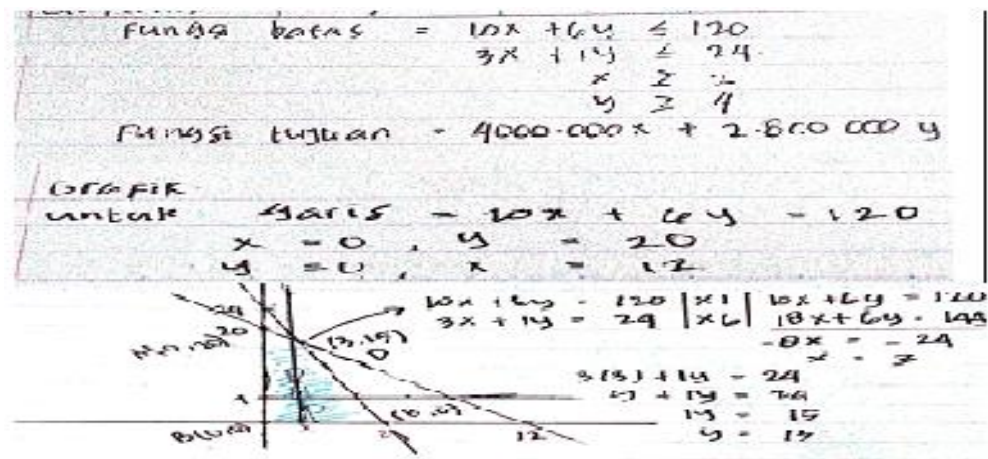 Fungsi batas = 10x + 6y ≤ 120
3x + 1y ≤ 24
x ≥
y ≥ 4
Fungsi tujuan = 4000.000x + 2.800 000 y
Grafik
untuk garis = 10x + 6y = 120
x = 0, y = 20
y = 0, x = 12
24
20
10x + 6y = 120 | x1 | 10x + 6y = 120
3x + 1y = 24 | x6 | 18x + 6y = 144
-8x = -24
x = 3
(3,15)
D
3(3) + 1y = 24
9 + 1y = 24
1y = 15
y = 15
12